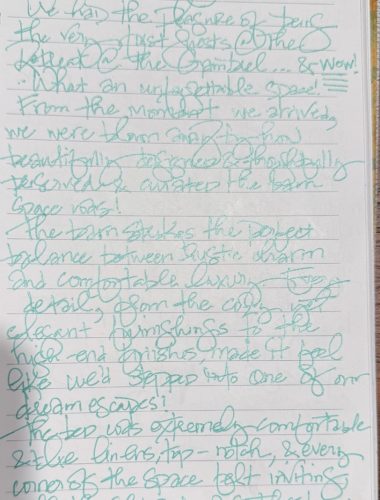 We had the pleasure of being
the very first guests @ the
Retreat @ the Gambrel ... & wow!
What an unforgettable space!
From the moment we arrived,
we were blown away by how
beautifully designed & thoughtfully
preserved & curated the barn
space was!
The barn strikes the perfect
balance between rustic charm
and comfortable luxury. Every
detail, from the cozy, yet
elegant furnishings to the
high-end finishes, made it feel
like we'd stepped into one of our
dream escapes!
The bed was extremely comfortable
& the linens, top-notch, & every
corner of the space felt inviting,